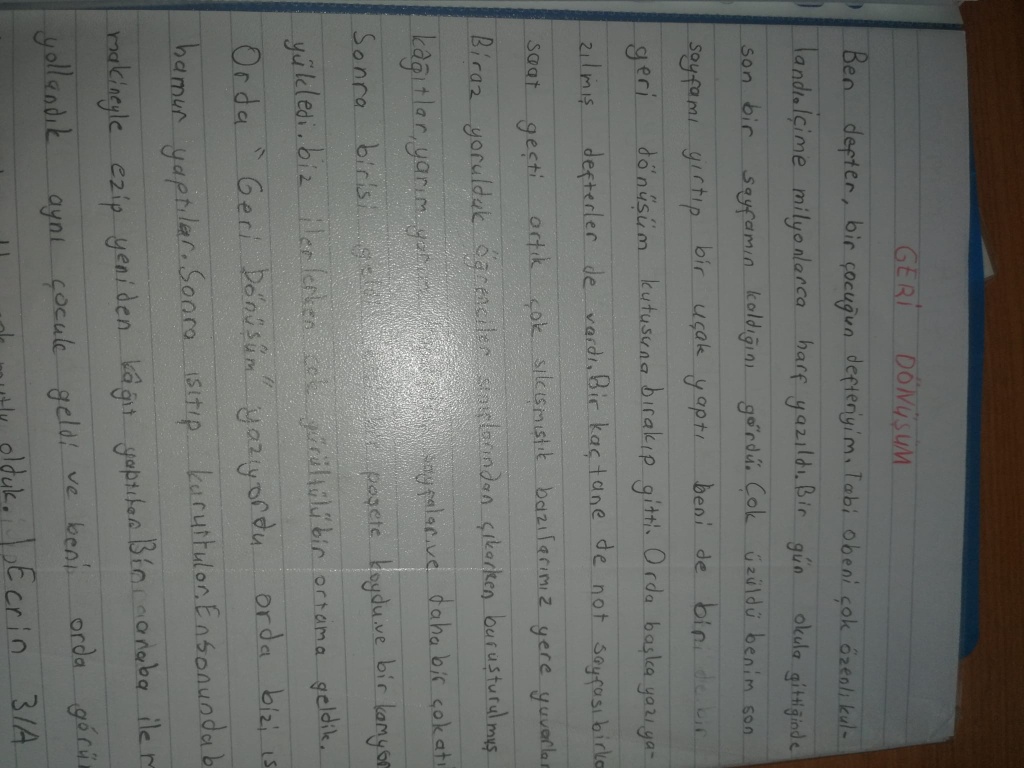 GERİ DÖNÜŞÜM
Ben defter, bir çocuğun defteriyim. Tabi o beni çok özenli kul-
landı. İçime milyonlarca harf yazıldı. Bir gün okula gittiğinde
son bir sayfamın kaldığını gördü. Çok üzüldü benim son
sayfamı yırtıp bir uçak yaptı beni de
geri dönüşüm kutusuna bırakıp gitti. Orda başka yazıya-
zılmış defterler de vardı. Bir kaç tane de not sayfası birka
saat geçti artık çok sıkışmıştık bazılarımız yere yuvarlan
Biraz yorulduk öğrenciler sınıflarından çıkarken buruşturulmuş
kâğıtlar, yarım sayfalar ve daha bir çok atı
Sonra birisi poşete koydu ve bir kamyon
yükledi. biz ilerlerken çok gürültülü bir ortama geldik.
Orda "Geri Dönüşüm" yazıyordu orda bizi ıs
hamur yaptılar. Sonra ısıtıp kuruttular. En sonunda b
makineyle ezip yeniden kâğıt yaptılar. Bir araba ile m
yollandık aynı çocuk geldi ve beni orda görün
mutlu olduk. Ecrin 3/A